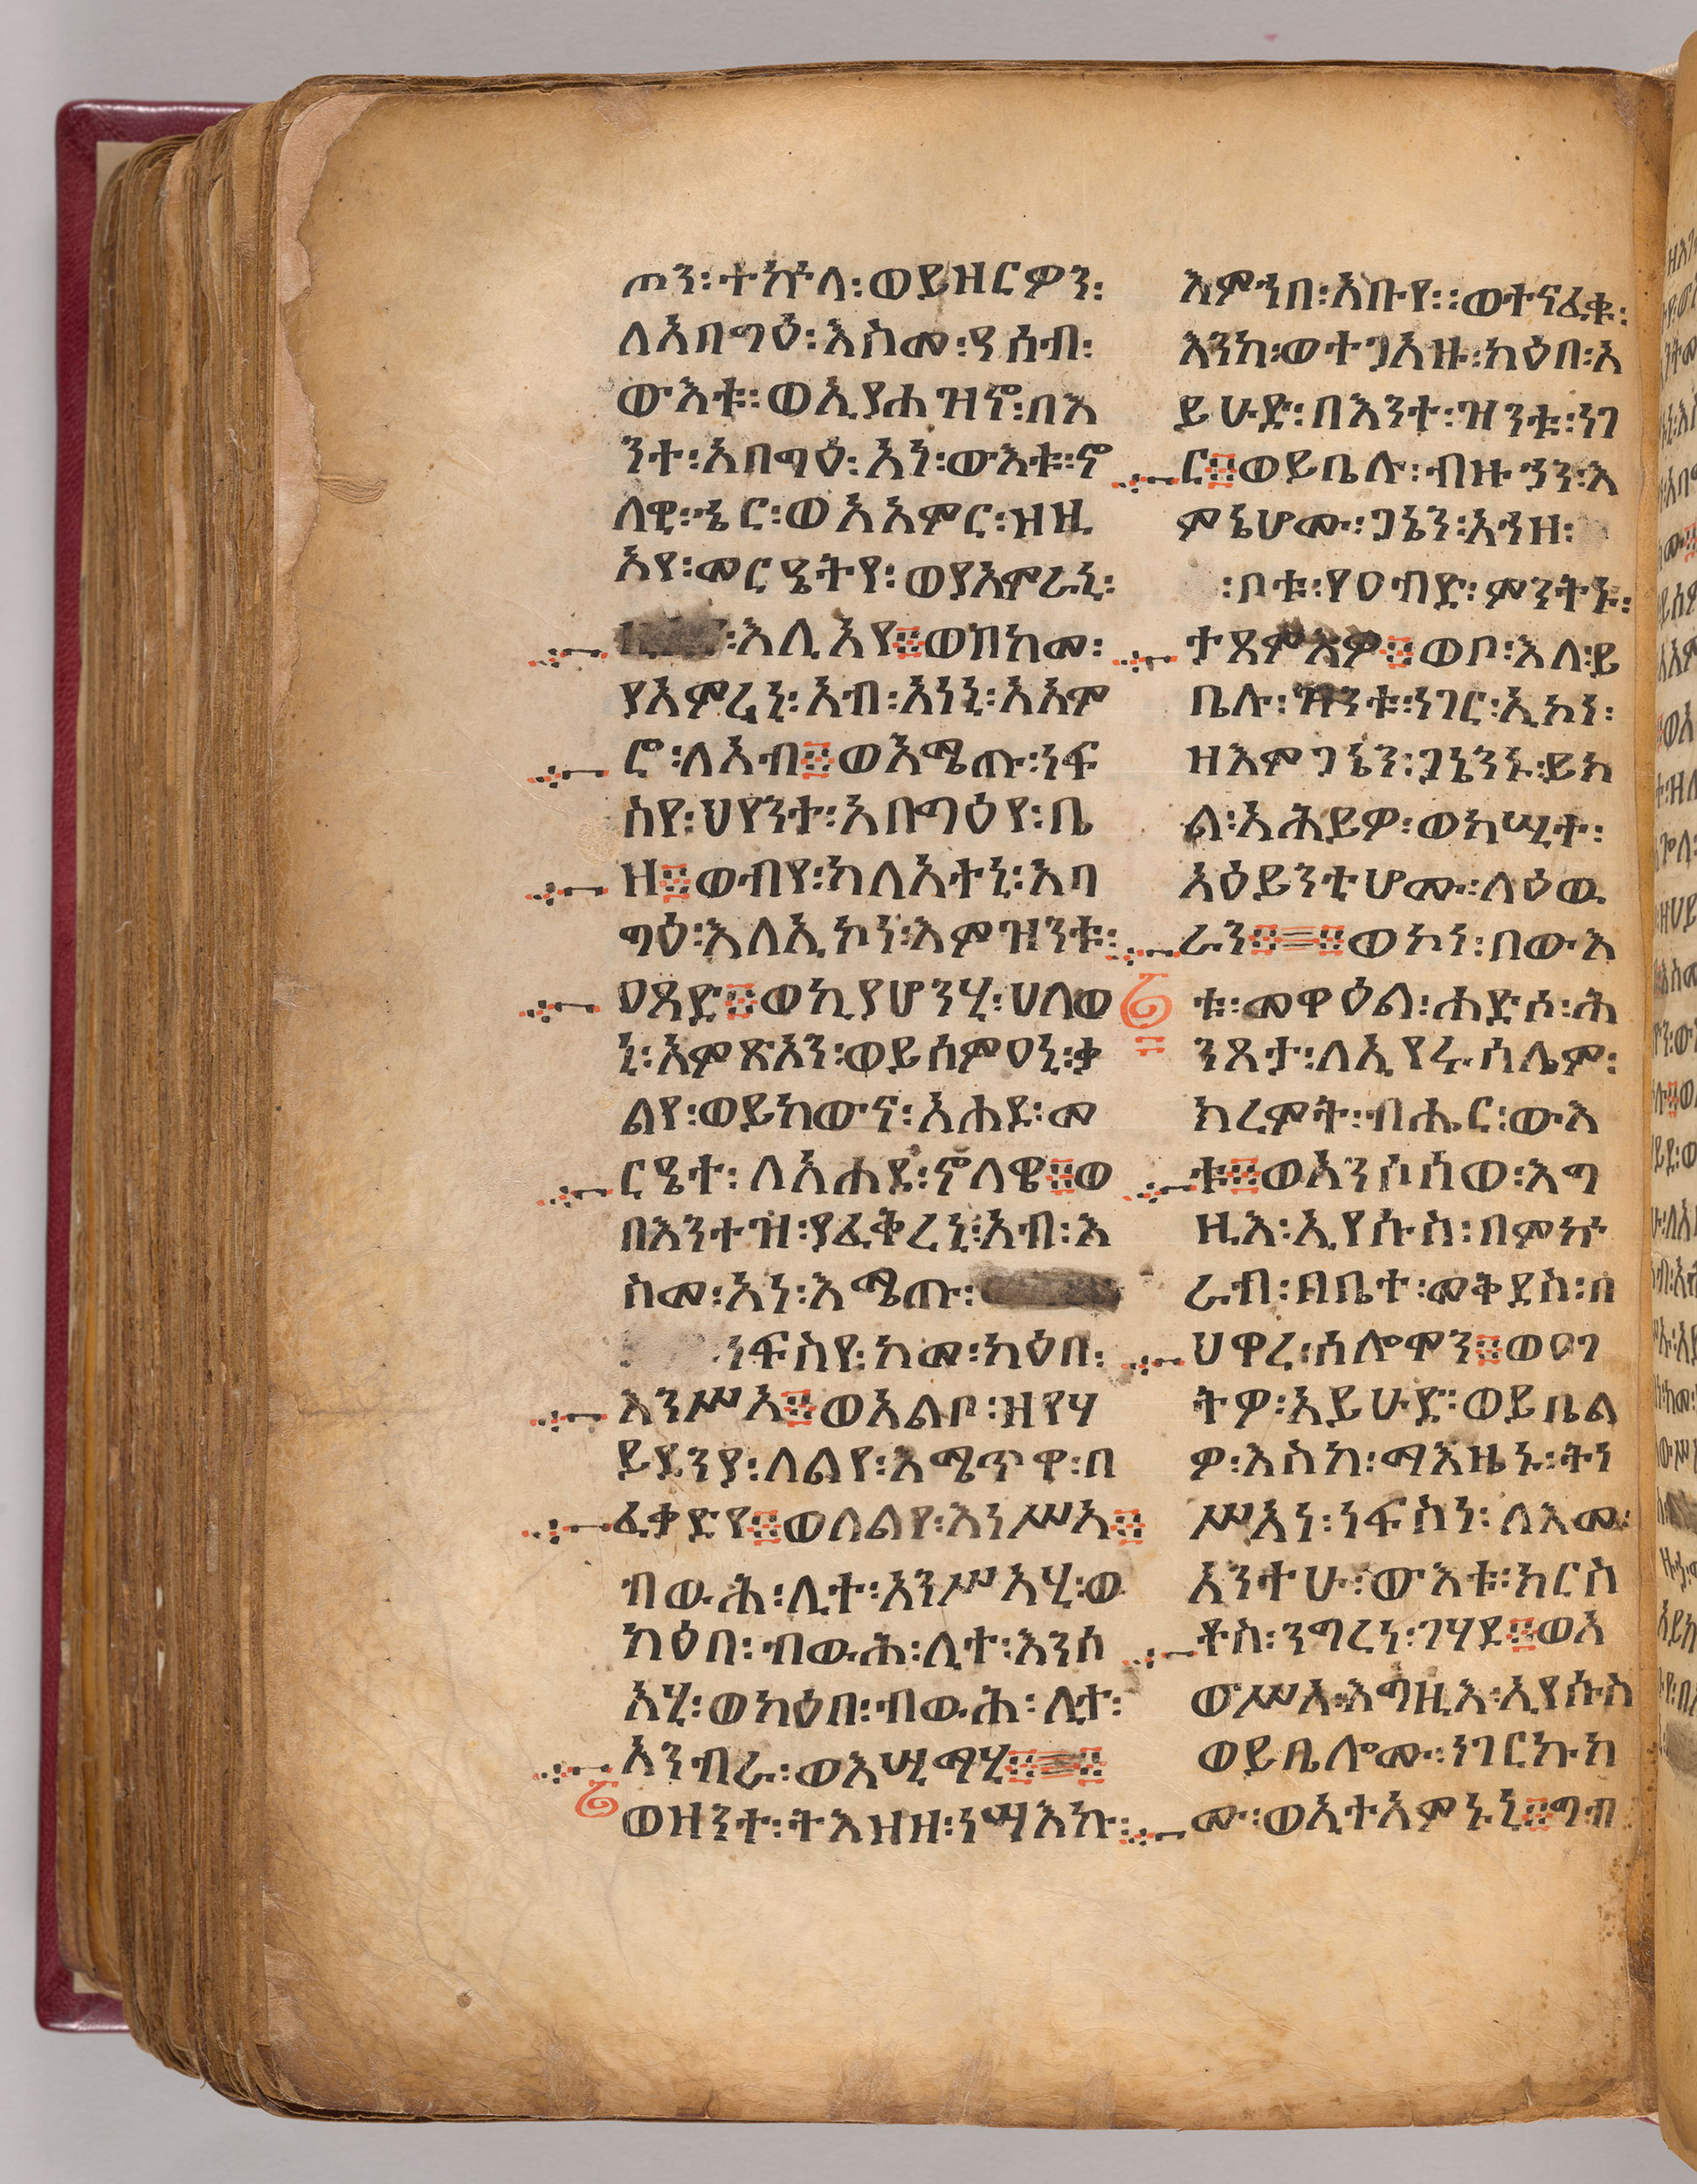 ጦን፡ተኵላ፡ወይዘርዎን፡
ለአባግዕ፡እስመ፡ዓሰብ፡
ውእቱ፡ወኢያሐዝኖ፡በእ
ንተ፡አባግዕ፡አን፡ውእቱ፡ኖ
ላዊ፡ኄር፡ወአአምር፡ዝዚ
አየ፡መርዔትየ፡ወያአምራኒ፡
፡እሊአየ፨ወበከመ፡
ያአምረኒ፡አብ፡አነኒ፡አአም
ሮ፡ለአብ፨ወእሜጡ፡ነፍ
ስየ፡ህየንተ፡አባግዕየ፡ቤ
ዛ፨ወብየ፡ካልአተኒ፡አባ
ግዕ፡እለኢኮነ፡እምዝንቱ፡
ዐጸድ፨ወኪያሆንሂ፡ሀለወ
ኒ፡አምጽኦን፡ወይሰምዐኒ፡ቃ
ልየ፡ወይከውና፡አሐደ፡መ
ርዔተ፡ለአሐዱ፡ኖላዊ፨ወ
በእንተዝ፡ያፈቅረኒ፡አብ፡እ
ስመ፡አነ፡እሜጡ፡
ነፍስየ፡ከመ፡ካዕበ፡
እንሥኣ፨ወአልቦ፡ዘየሃ
ይደንያ፡ለልየ፡እሜጥዋ፡በ
ፈቃድየ፨ወለልየ፡እነሥኣ፨
ብውሕ፡ሊተ፡አንሥኣሂ፡ወ
ካዕበ፡ብውሕ፡ሊተ፡እንሰ
አሂ፡ወካዕበ፡ብውሕ፡ሊተ፡
አንብራ፡ወእሢማሂ፨፨
ወዘንተ፡ትእዛዘ፡ነሣእኩ፡
እምኀበ፡አቡየ፡፡ወተናፈቁ፡
እንከ፡ወተጋአዙ፡ካዕበ፡አ
ይሁድ፡በእንተ፡ዝንቱ፡ነገ
ር፨ወይቤሉ፡ብዙኃን፡እ
ምኔሆሙ፡ጋኔን፡እኀዘ፡
፡ቦቱ፡የዐብድ፡ምንትኑ፡
ታጸምእዎ፨ወቦ፡እለ፡ይ
ቤሉ፡ዝንቱ፡ነገር፡ኢኮነ፡
ዘእምጋኔን፡ጋኔንኑ፡ይክ
ል፡አሕይዎ፡ወከሢተ፡
አዕይንቲሆሙ፡ለዕዉ
ራን፨፨ወኮነ፡በውእ
ቱ፡መዋዕል፡ሐድሶ፡ሕ
ንጸታ፡ለኢየሩሳሌም፡
ክረምት፡ብሔር፡ውእ
ቱ፨ወአንሶሰወ፡እግ
ዚእ፡ኢየሱስ፡በምኵ
ራብ፡በቤተ፡መቅደስ፡በ
ህዋረ፡ሰሎሞን፨ወዐገ
ትዎ፡አይሁድ፡ወይቤል
ዎ፡እስከ፡ማእዜኑ፡ትነ
ሥአነ፡ነፍስነ፡ለእመ፡
አንተሁ፡ውእቱ፡ክርስ
ቶስ፡ንግረነ፡ገሃደ፨ወአ
ውሥአ፡እግዚእ፡ኢየሱስ
ወይቤሎሙ፡ነገርኩክ
ሙ፡ወኢተአምኑኒ፨ግብ